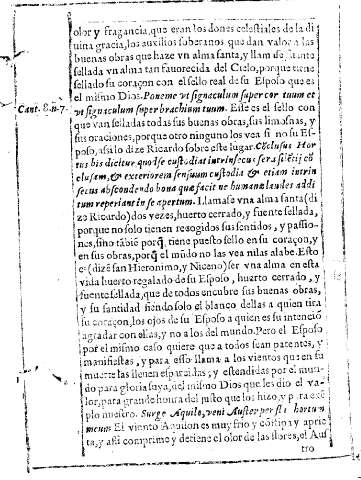 olor y fragancia, que eran los dones celestiales de la di
uina gracia, los auxilios soberanos que dan valor a las
buenas obras que haze vn alma santa, y llam se fuente
sellada vn alma tan fauorecida del Cielo, porque tiene
sellado su coraçon con el sello real de su Esposo que es
el mismo Dios. Poneme vt signaculum super cor tuum et
Cant. 8. n. 7.
vt signaculum super brachium tuum. Este es el sello con
que van selladas todas sus buenas obras, sus limosnas, y
sus oraciones, porque otro ninguno los vea si no su Es-
poso, assi lo dize Ricardo sobre este lugar. Cōclusus Hor
tus bis dicitur, quo se custodiat intrinsecus
clusam, & exteriorem sensuum custodia & etiam intrin
secus abscondendo bona quæ facit ne humanæ laudes addi
tum reperiant in se apertum. Llamase vna alma santa (di
zo Ricardo) dos vezes, huerto cerrado, y fuente sellada,
porque no solo tienen resogidos sus sentidos, y passio-
nes, sino tābiē porq̄, tiene puesto sello en su coraçon, y
en sus obras, porq̄ el mūdo no las vea nilas alabe. Esto
es (dizē san Hieronimo, y Niceno) ser vna alma en esta
vida huerto regalado de su Esposo, huerto cerrado, y
fuente sellada, que de todos encubre sus buenas obras,
y su santidad siendo solo el blanco dellas a quien tira
su coraçon, los ojos de su Esposo a quien es su intenciō
agradar con ellas, y no a los del mundo. Pero el Esposo
por el mismo caso quiere que a todos sean patentes, y
manifiestas, y para esso llama a los vientos que en su
muerte las lleuen esparcidas, y estendidas por el mun-
do para gloria suya, del mismo Dios que les dio el va-
lor, para grande honra del justo que los hizo, y para exē
plo nuestro. Surge Aquilo, veni Auster perfla hortum
meum. El viento Aquilon es muy frio y cōstipa y aprie
ta, y assi comprime y detiene el olor de las flores, el Aus
tro